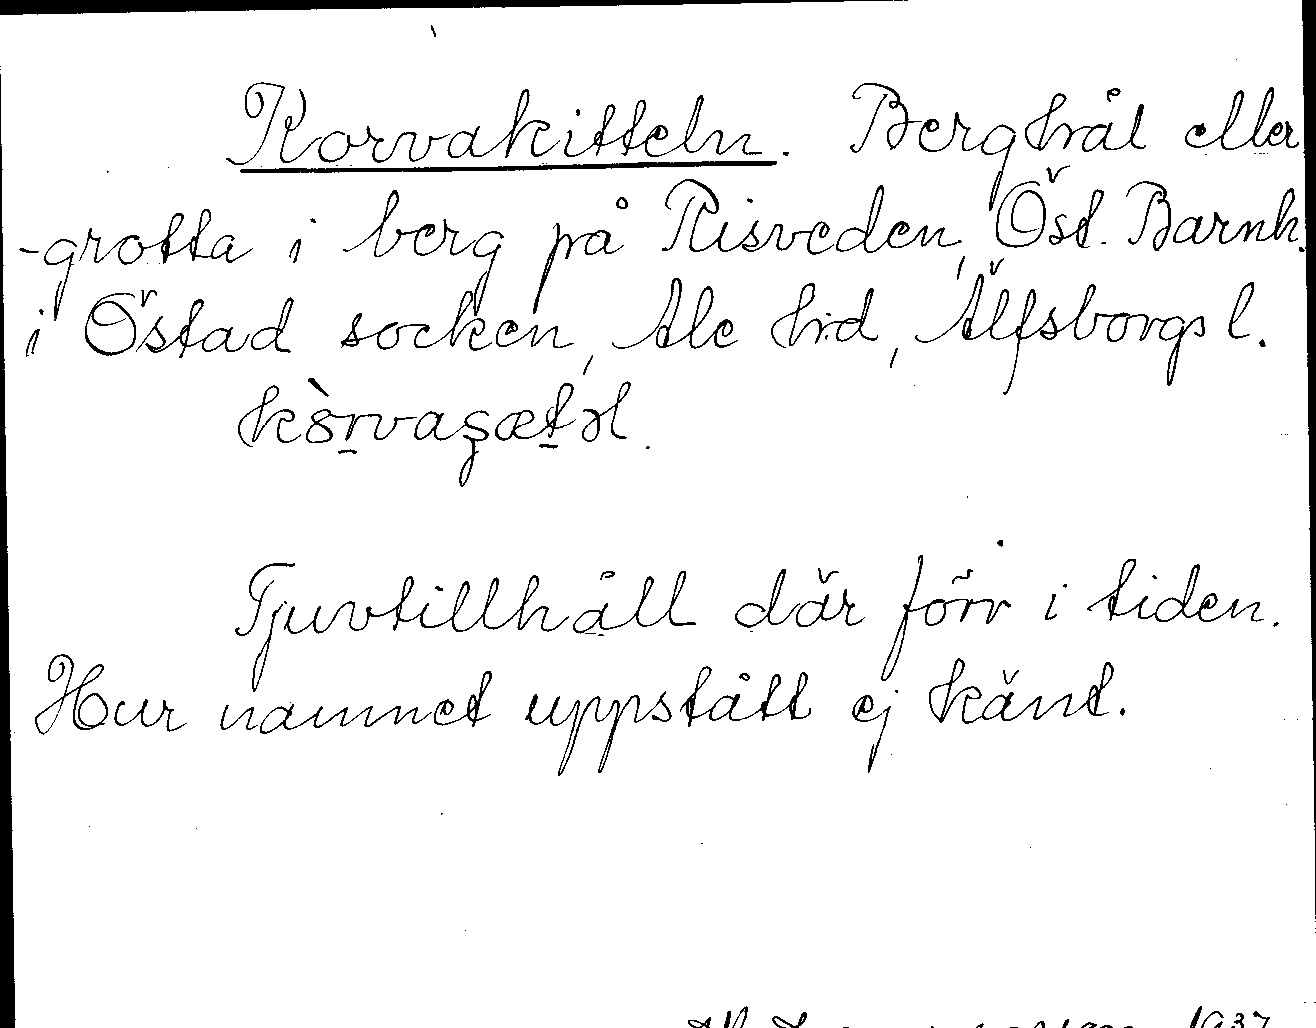 Korvakitteln. Berghål eller
-grotta i berg på Risveden, Öst. Barnh.
i Östad socken, Ale hrd, Älfsborgs l.
Tjuvtillhåll där förr i tiden.
Hur namnet uppstått ej känt.
1937